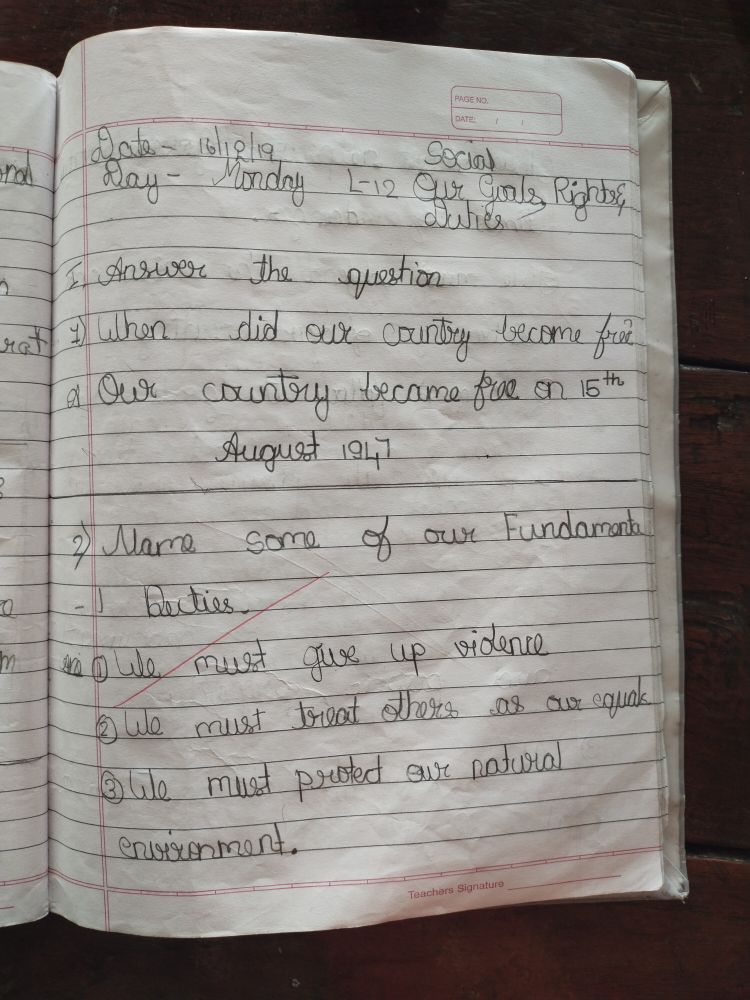 PAGE NO.
DATE: / /
Date - 16/12/19 Social
Day - Monday L-12 Our Goals, Rights &
Duties
I. Answer the question
1) When did our country become free
a) Our country became free on 15th
August 1947
2) Name some of our Fundamenta
- l Decties.
ans ① We must give up vidence
② We must treat others as our equals
③ We must protect our natural
environment.
Teachers Signature